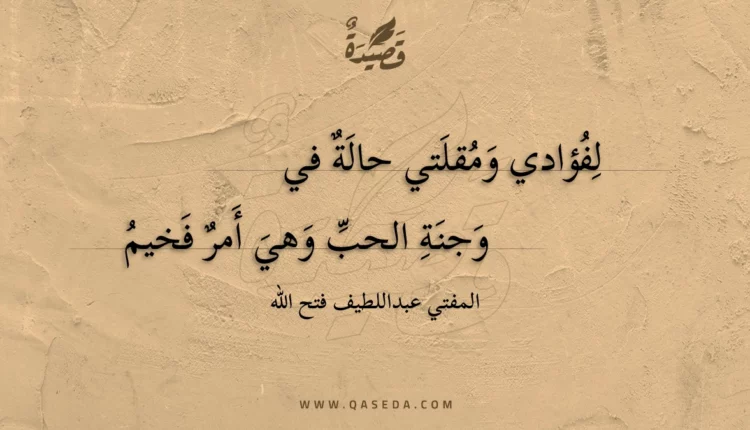 قَصِيدَةٌ
لِفُؤادي وَمُقلَتي حالَةٌ في
وَجنَةِ الحبِّ وَهيَ أَمرٌ فَخيمُ
المفتي عبداللطيف فتح الله
WWW.QASEDA.COM